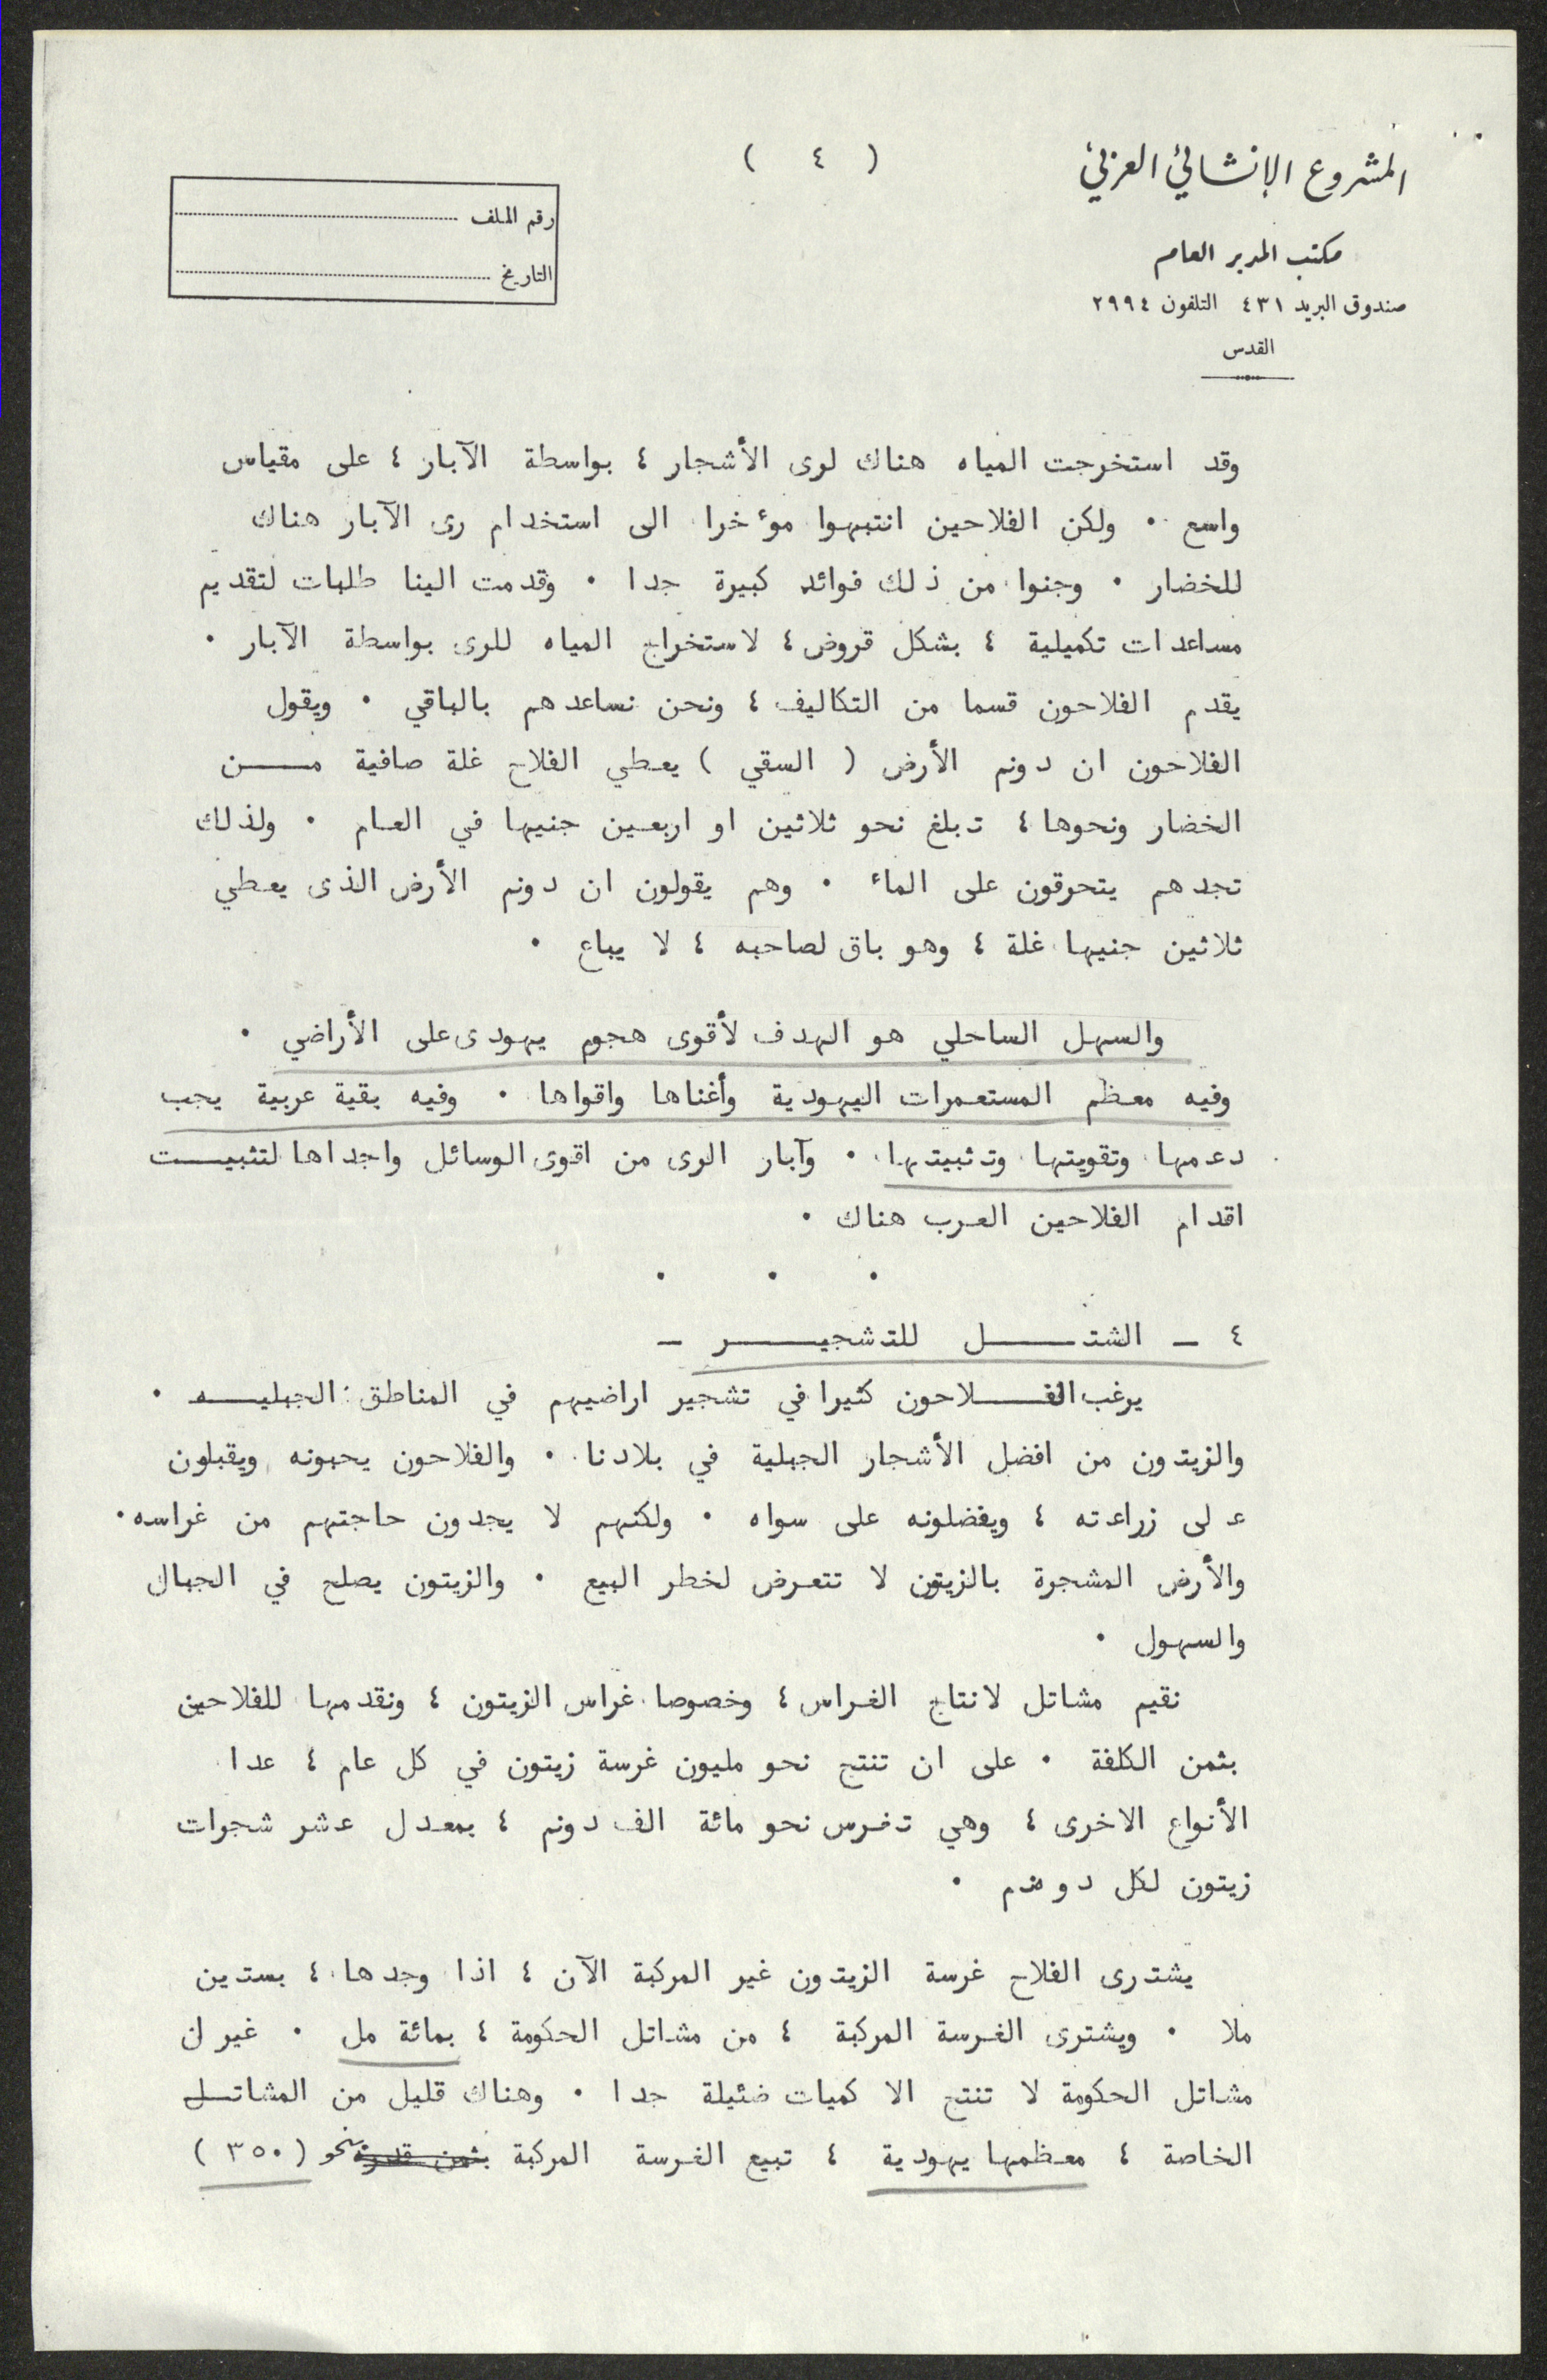 ( ٤ )
المشروع الإنشائي العربي
مكتب المدير العام
صندوق البريد ٤٣١ التلفون ٢٩٩٤
القدس
رقم الملف
التاريخ
وقد استخرجت المياه هناك لرى الأشجار ، بواسطة الآبار ، على مقياس
واسع . ولكن الفلاحين انتبهوا موءخرا الى استخدام رى الآبار هناك
للخضار . وجنوا من ذلك فوائد كبيرة جدا . وقدمت الينا طلبات لتقديم
مساعدات تكميلية ، بشكل قروض ، لاستخراج المياه للرى بواسطة الآبار .
يقدم الفلاحون قسما من التكاليف ، ونحن نساعدهم بالباقي . ويقول
الفلاحون ان دونم الأرض ( السقي ) يعطي الفلاح غلة صافية مـــن
الخضار ونحوها ، تبلغ نحو ثلاثين او اربعين جنيها في العام . ولذلك
تجدهم يتحرقون على الماء . وهم يقولون ان دونم الأرض الذى يعطي
ثلاثين جنيها غلة ، وهو باق لصاحبه ، لا يباع .
والسهل الساحلي هو الهدف لأقوى هجوم يهودى على الأراضي .
وفيه معظم المستعمرات اليهودية وأغناها واقواها . وفيه بقية عربية يجب
دعمها وتقويتها وتثبيتها . وآبار الرى من اقوى الوسائل واجداها لتثبيــت
اقدام الفلاحين العرب هناك .
. . .
٤ ـ الشتــــل للتشجيــــر ـ
يرغب الفـــلاحون كثيرا في تشجير اراضيهم في المناطق الجبليــه .
والزيتون من افضل الأشجار الجبلية في بلادنا . والفلاحون يحبونه ويقبلون
على زراعته ، ويفضلونه على سواه . ولكنهم لا يجدون حاجتهم من غراسه .
والأرض المشجرة بالزيتون لا تتعرض لخطر البيع . والزيتون يصلح في الجبال
والسهول .
نقيم مشاتل لانتاج الغراس ، وخصوصا غراس الزيتون ، ونقدمها للفلاحين
بثمن الكلفة . على ان تنتج نحو مليون غرسة زيتون في كل عام ، عدا
الأنواع الاخرى ، وهي تغرس نحو مائة الف دونم ، بمعدل عشر شجرات
زيتون لكل دونم .
يشترى الفلاح غرسة الزيتون غير المركبة الآن ، اذا وجدها ، بستين
ملا . ويشترى الغرسة المركبة ، من مشاتل الحكومة ، بمائة مل . غير ان
مشاتل الحكومة لا تنتج الا كميات ضئيلة جدا . وهناك قليل من المشاتــل
الخاصة ، معظمها يهودية ، تبيع الغرسة المركبة بثمن قدره نحو ( ٣٥٠ )